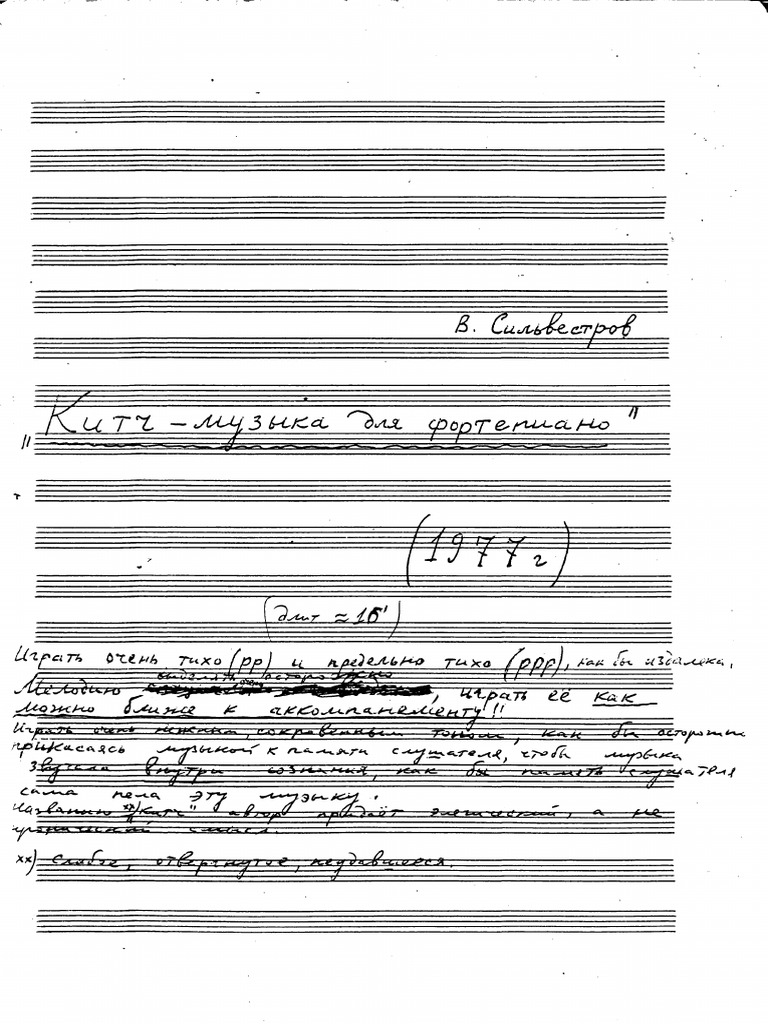 В. Сильвестров
"Китч – музыка для фортепиано"
(1977 г)
(длит ≈ 16')
Играть очень тихо (pp) и предельно тихо (ppp), как бы издалека.
выделять очень осторожно
Мелодию , играть её как
можно ближе к аккомпанементу!!
Играть очень нежным, сокровенным тоном, как бы осторожно
прикасаясь музыкой к памяти слушателя, чтобы музыка
звучала внутри сознания, как бы память слушателя
сама пела эту музыку.
Названию xx) "Китч" автор придаёт элегический, а не
иронический смысл.
xx) слабое, отвергнутое, неудавшееся.